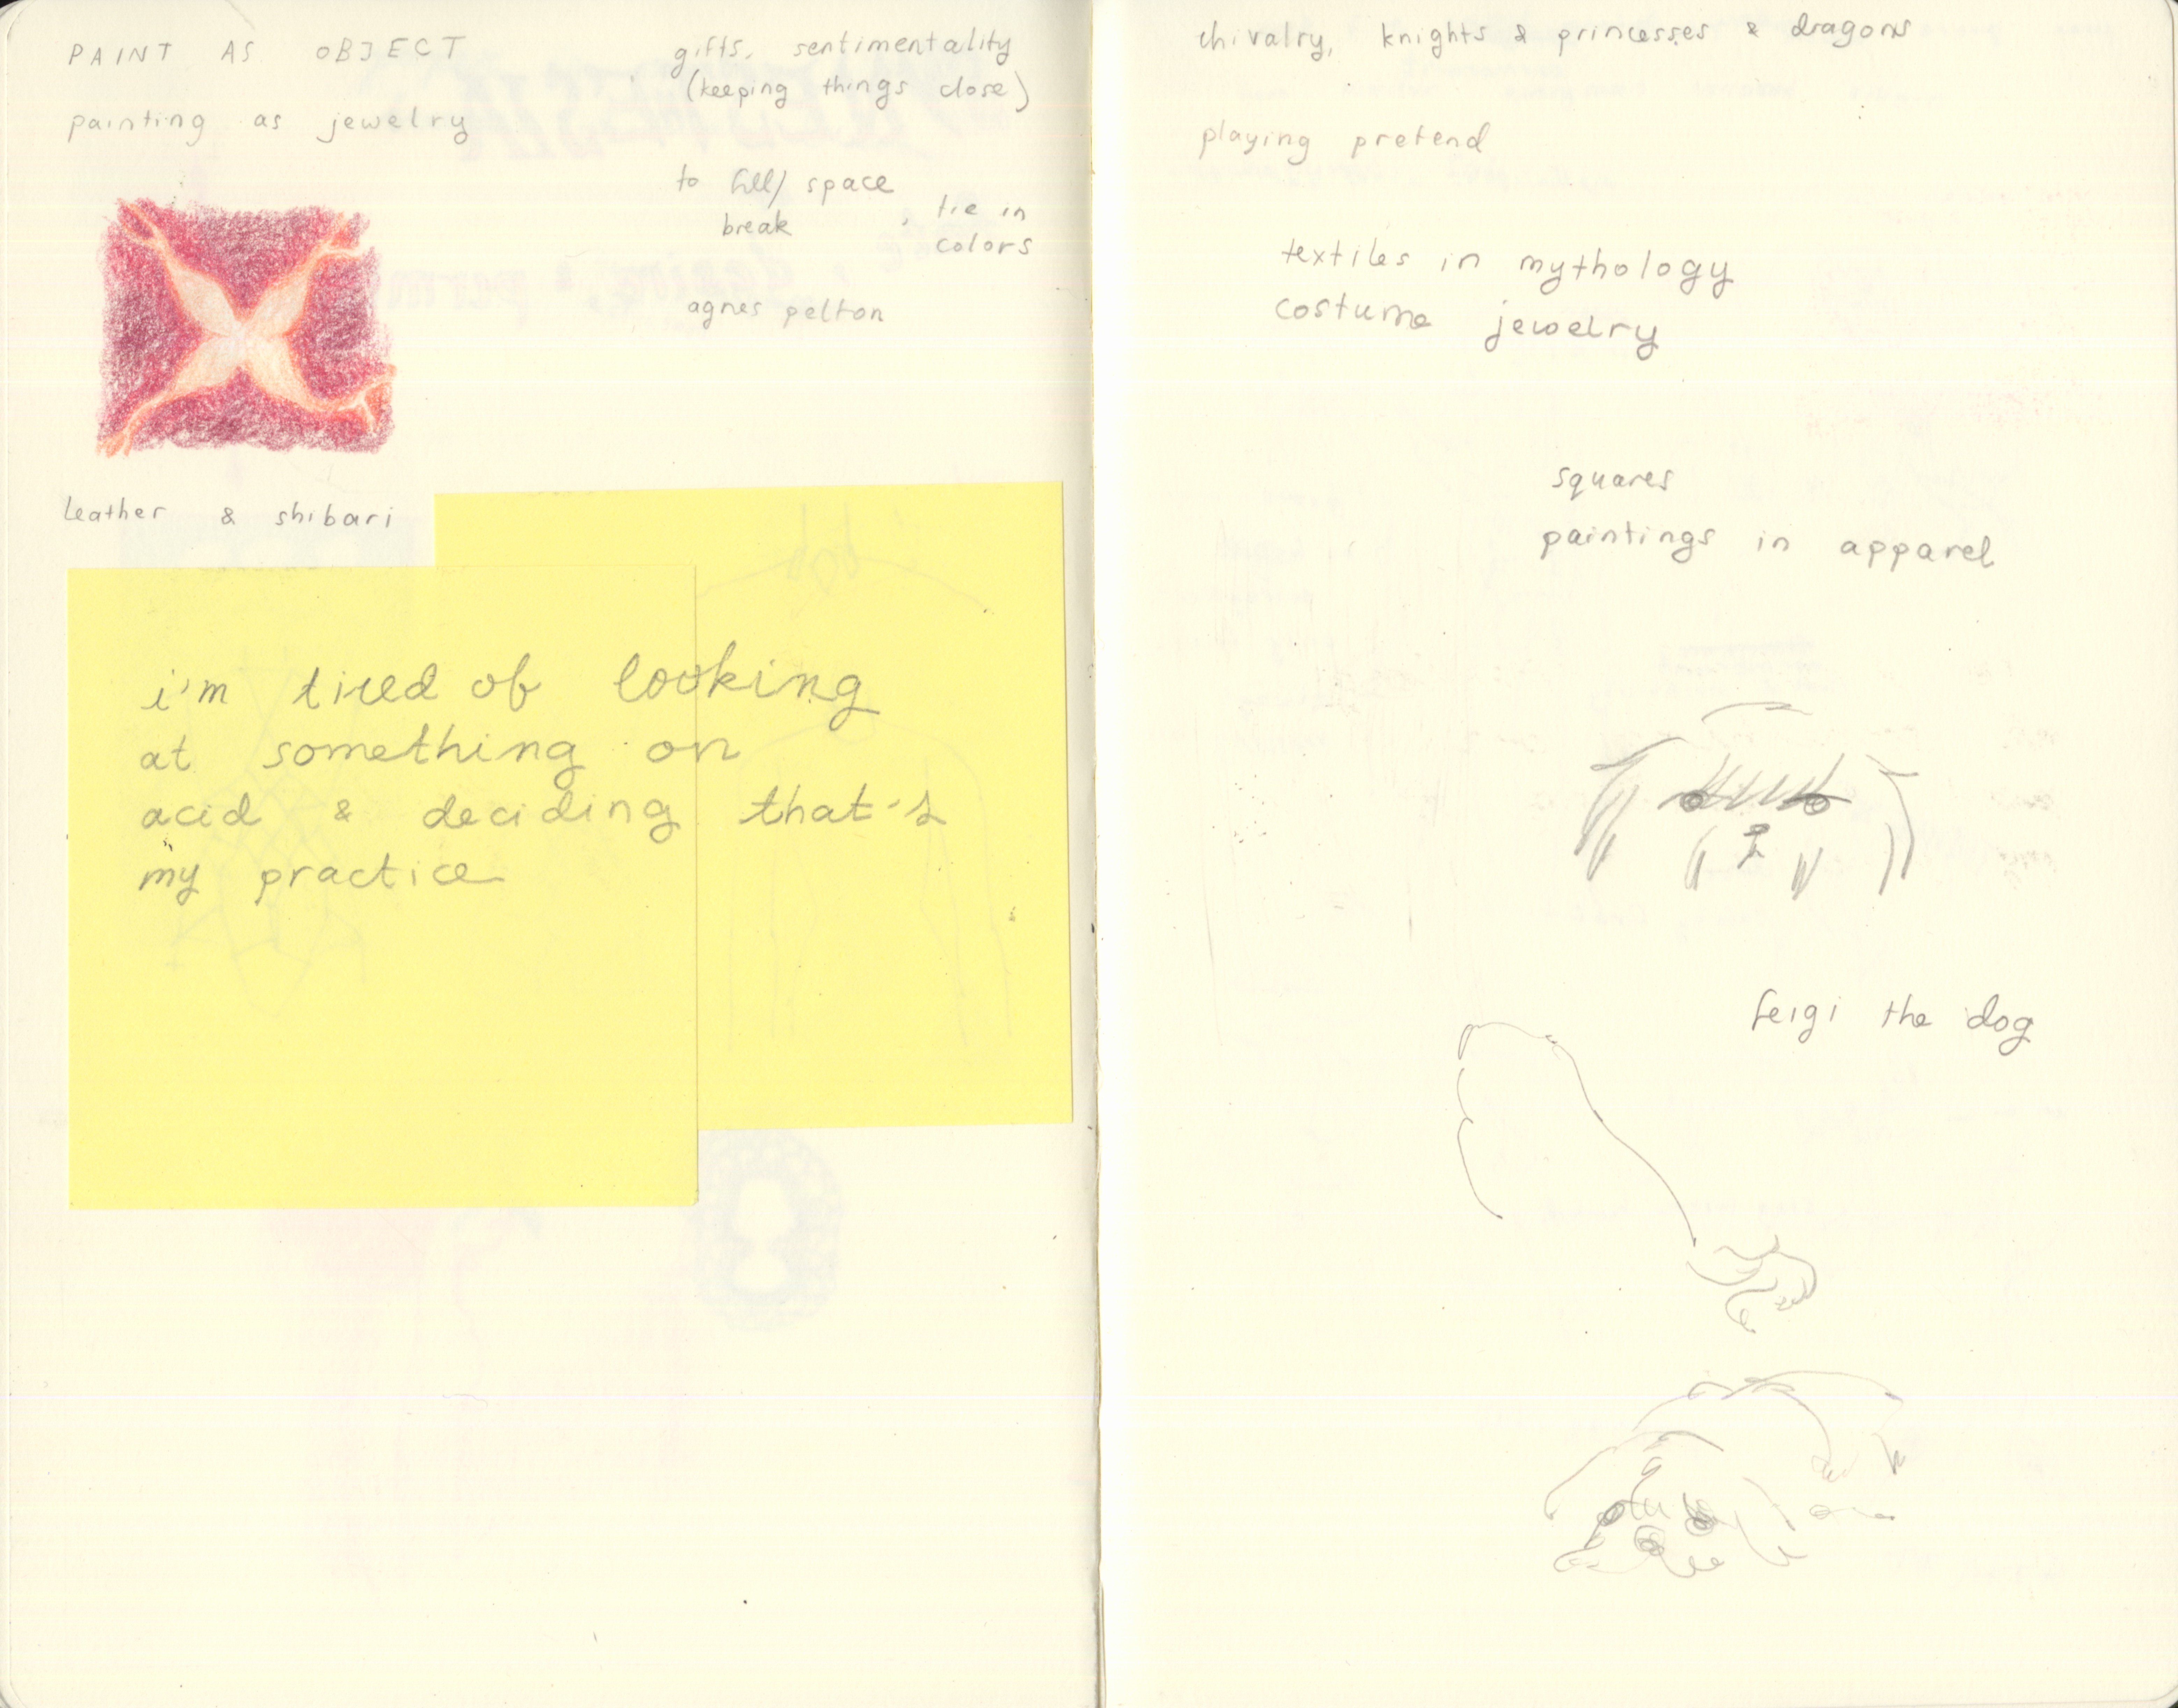 PAINT AS OBJECT
painting as jewelry
gifts, sentimentality
(keeping things close)
to fill/ space
break
, tie in
colors
agnes pelton
leather & shibari
i'm tired of looking
at something on
acid & deciding that's
my practice
chivalry, knights & princesses & dragons
playing pretend
textiles in mythology
costume jewelry
squares
paintings in apparel
feigi the dog